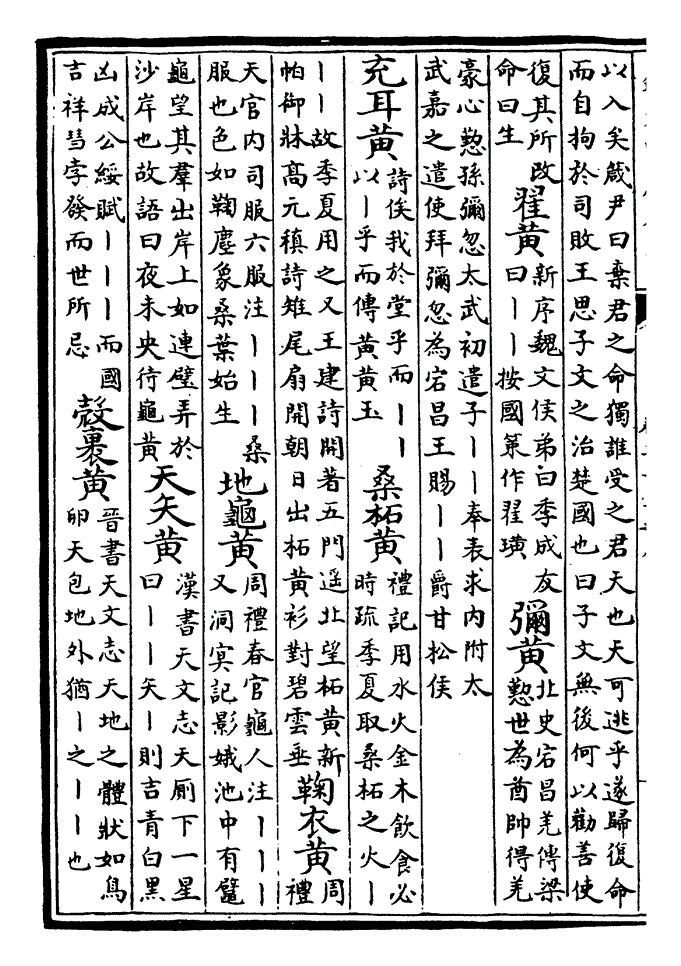 以入矣箴尹曰棄君之命獨誰受之君天也天可逃乎遂歸復命
而自拘於司敗王思子文之治楚國也曰子文無後何以勸善使
復其所改
命曰生
翟黃
新序魏文侯弟曰季成友
曰｜｜按國策作翟璜
彌黃
北史宕昌羌傳梁
懃世為酋帥得羌
豪心懃孫彌忽太武初遣子｜｜奉表求內附太
武嘉之遣使拜彌忽為宕昌王賜｜｜爵甘松侯
充耳黃
詩俟我於堂乎而｜｜
以｜乎而傳黃黃玉
桑柘黃
禮記用水火金木飲食必
時疏季夏取桑柘之火｜
｜｜故季夏用之又王建詩開著五門遥北望柘黃新
帕御牀高元稹詩雉尾扇開朝日出柘黃衫對碧雲垂
鞠衣黃
周
禮
天官内司服六服注｜｜｜桑
服也色如鞠塵象桑葉始生
地龜黃
周禮春官龜人注｜｜｜
又洞冥記影娥池中有鼉
龜望其羣出岸上如連璧弄於
沙岸也故語曰夜未央待龜黃
天矢黃
漢書天文志天厠下一星
曰｜｜矢｜則吉青白黑
凶成公綏賦｜｜｜而國
吉祥彗孛發而世所忌
殼裹黃
晉書天文志天地之體狀如鳥
卵天包地外猶｜之｜｜也